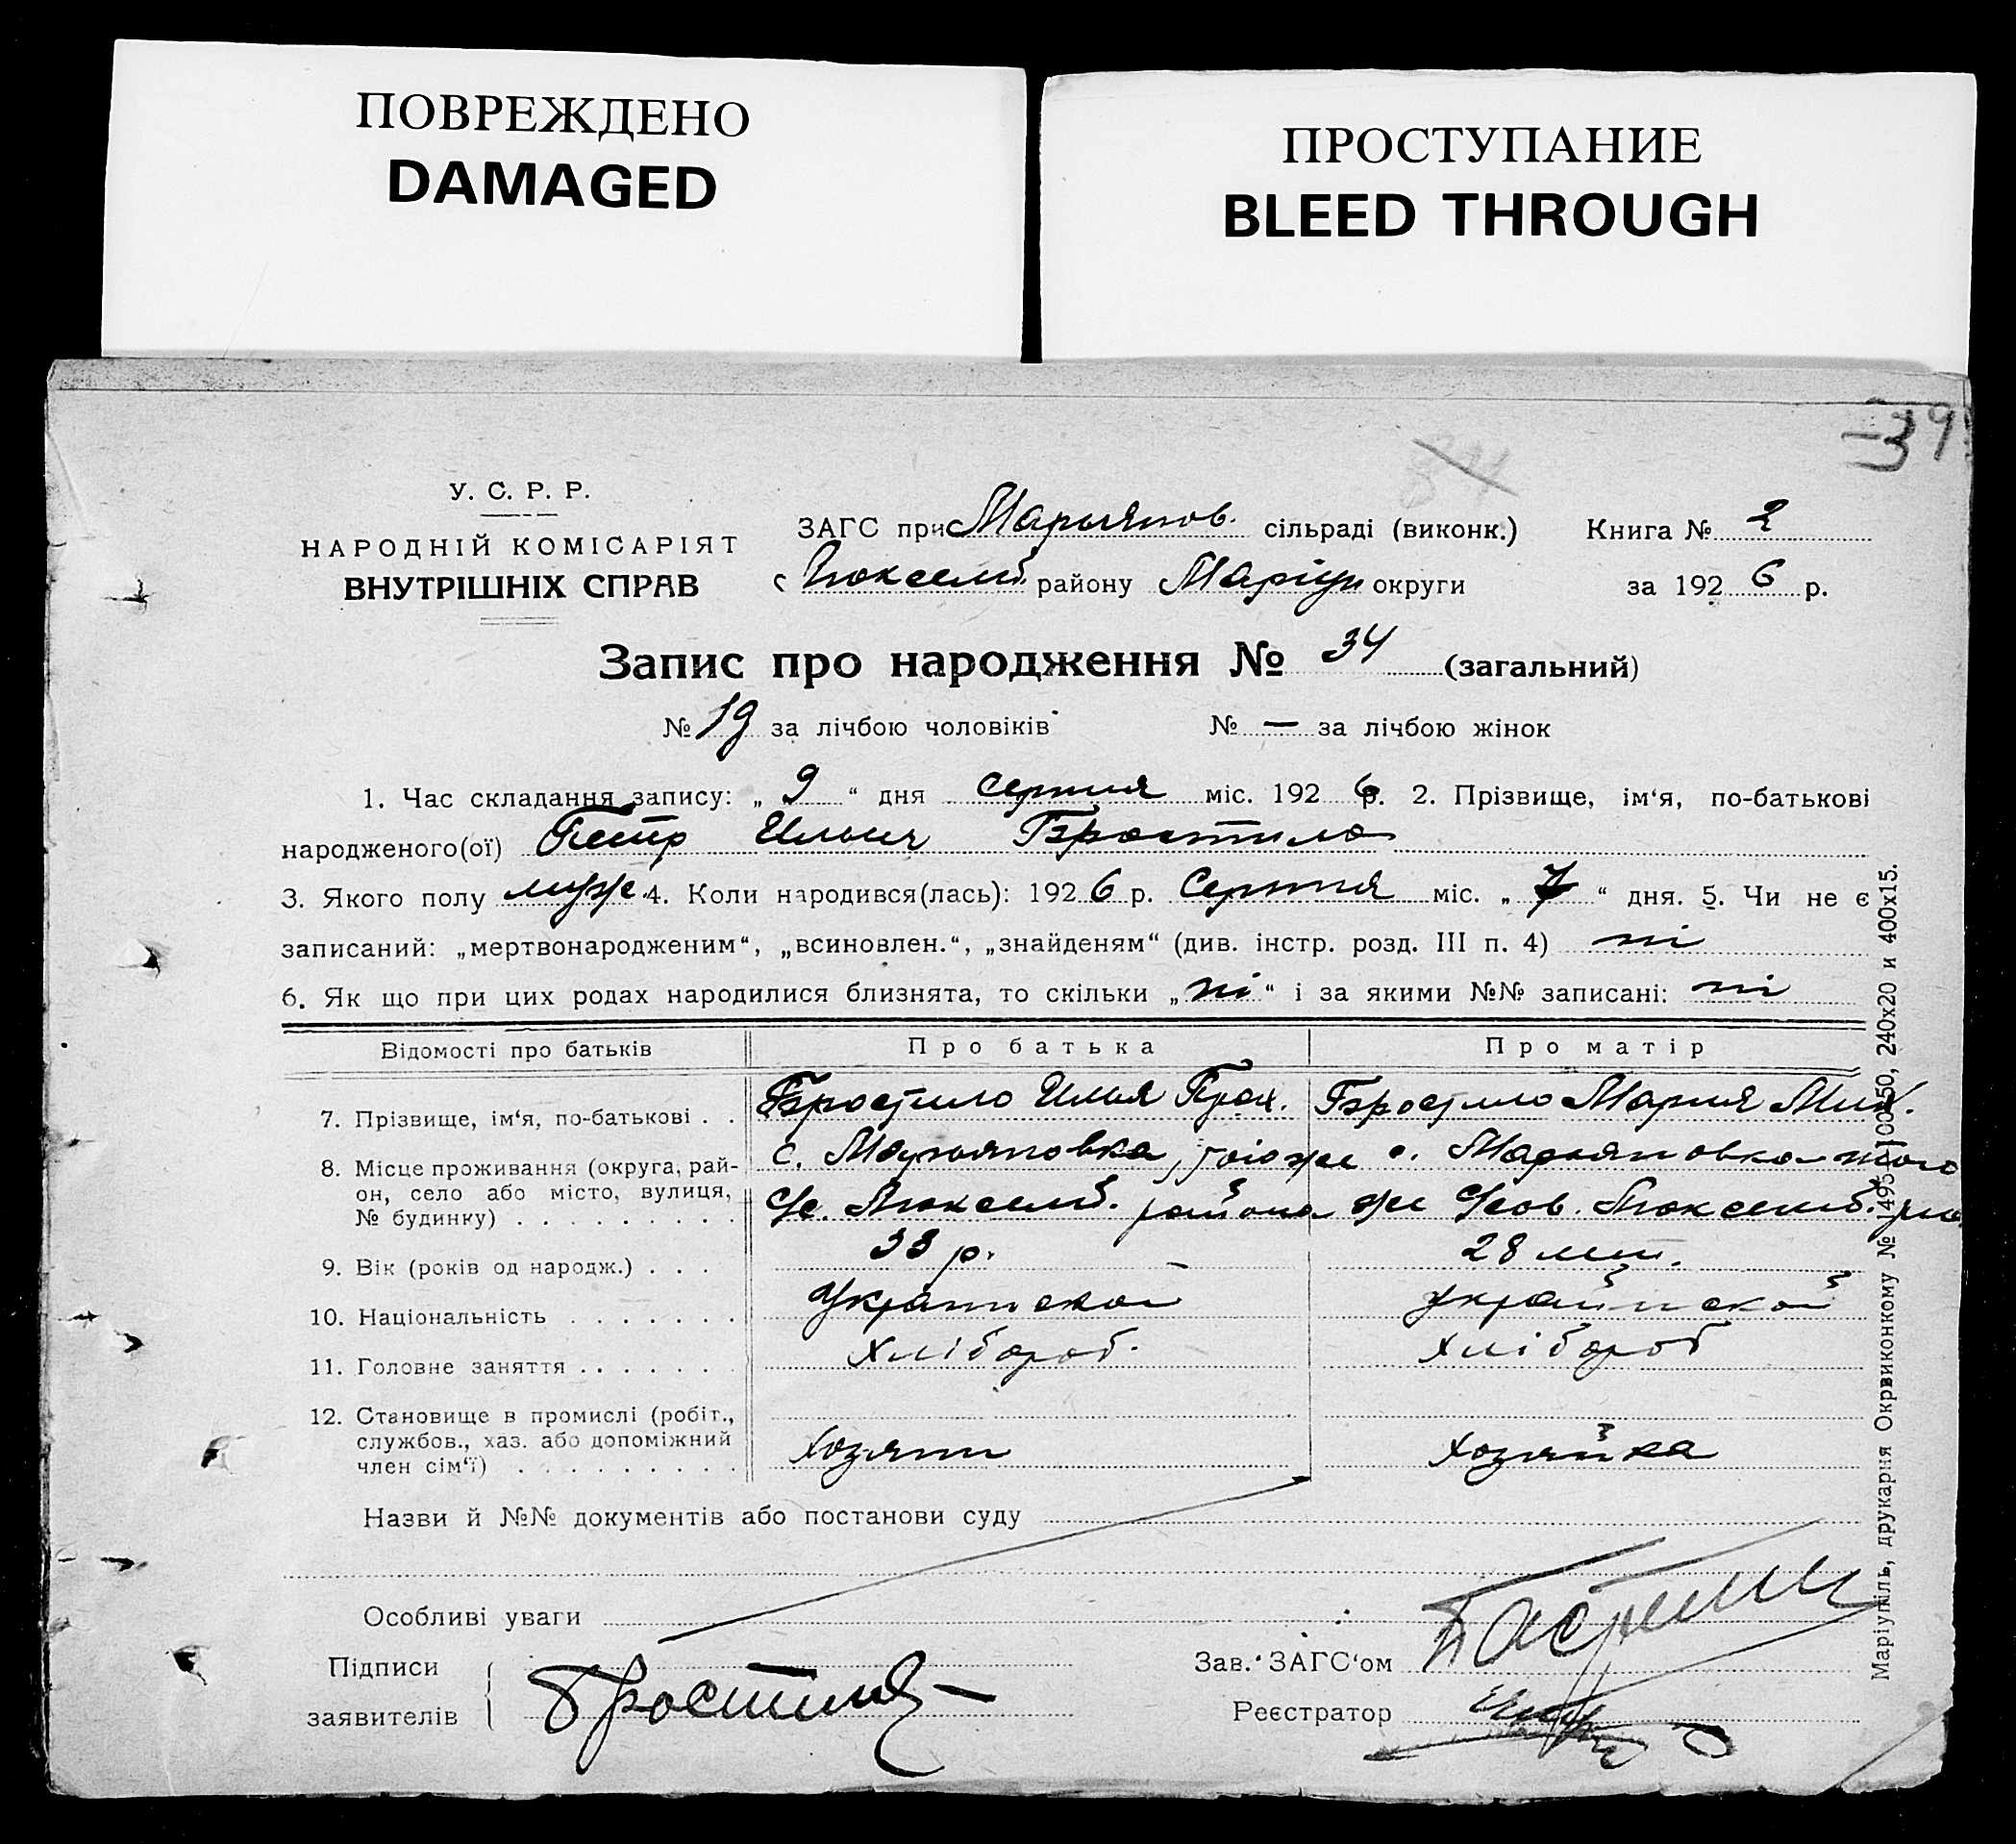 ПОВРЕЖДЕНО
DAMAGED
ПРОСТУПАНИЕ
BLEED THROUGH
39
34
У. С. Р. Р.
НАРОДНІЙ КОМІСАРІЯТ
ВНУТРІШНІХ СПРАВ
ЗАГС при Марьянов. сільраді (виконк.) Книга № 2
Люксемб. району Маріуп округи за 1926 р.
Запис про народження № 34 (загальний)
№ 19 за лічбою чоловіків № — за лічбою жінок
1. Час складання запису: „ 9 “ дня серпня міс. 1926 р. 2. Прізвище, ім‘я, по-батькові
народженого(ої) Петр Ильич Бростило
3. Якого полу муже. 4. Коли народився(лась): 1926 р. Серпня міс. „ 7 “ дня. 5. Чи не є
записаний: „мертвонародженим“, „всиновлен.“, „знайденям“ (див. інстр. розд. III п. 4) ні
6. Як що при цих родах народилися близнята, то скільки „ ні “ і за якими №№ записані: ні
Відомості про батьків Про батька Про матір
7. Прізвище, ім‘я, по-батькові . . Бростило Илья Бростило Мария Мих.
8. Місце проживання (округа, рай- с. Марьяновка, с. Марьяновка того
он, село або місто, вулиця, Люксемб. района же Люксемб.
№ будинку) . . . . . . . . .
9. Вік (років од народж.) . . . 33 р. 28 лет.
10. Національність . . . . . . . Украинской украинской
11. Головне заняття . . . . . . Хлібороб. хлібороб
12. Становище в промислі (робіт.,
службов., хаз. або допоміжний
член сім‘ї) . . . . . . . . . Хозяин хозяйка
Назви й №№ документів або постанови суду
Особливі уваги
Підписи
заявителів Бростило
Зав. ЗАГС‘ом
Реєстратор
Маріупіль, друкарня Окрвиконкому № 1495 240х20 и 400х15.